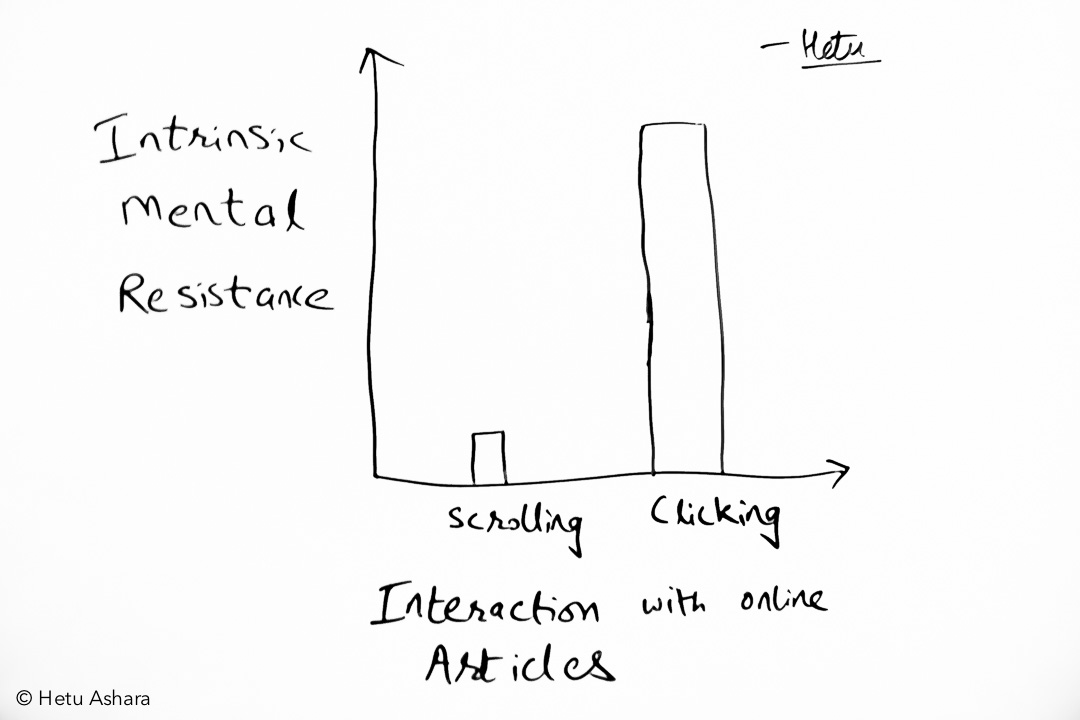 - Hetu
Intrinsic
Mental
Resistance
Scrolling
Clicking
Interaction with online
Articles
© Hetu Ashara